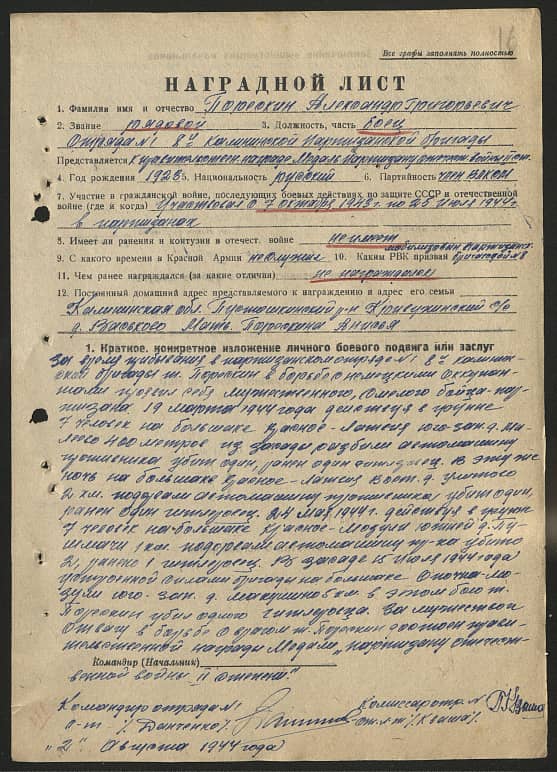 Все графы заполнять полностью
НАГРАДНОЙ ЛИСТ
1. Фамилия имя и отчество Пороскин Александр Григорьевич
2. Звание рядовой 3. Должность, часть боец
отряда №1 8й Калининской Партизанской бригады
Представляется к правительствен. награде Медаль Партизану отечест. войны II ст.
4. Год рождения 1928 5. Национальность русский 6. Партийность член ВЛКСМ
7. Участие в гражданской войне, последующих боевых действиях по защите СССР и отечественной
войне (где и когда) Участвовал с 7 октября 1943 г. по 25 июля 1944 г.
в партизанах
8. Имеет ли ранения и контузии в отечест. войне не имеет
мобилизован партизанск.
9. С какого времени в Красной Армии не служил 10. Каким РВК призван бригадой №8
11. Чем ранее награждался (за какие отличия) не награждался
12. Постоянный домашний адрес представляемого к награждению и адрес его семьи
Калининская обл. Пустошкинский р-н Кривухинский с/с
д. Васьково Мать Пороскина
1. Краткое, конкретное изложение личного боевого подвига или заслуг
За время пребывания в партизанском отряде №1 8й калинин-
ской бригады т. Пороскин в борьбе с немецкими оккупан-
тами проявил себя мужественного, смелого бойца-пар-
тизана. 19 марта 1944 года действуя в группе
7 человек на большаке Красное-Латвия юго-зап. д.
400 метров из засады разбили автомашину
противника убит один, ранен один гитлеровец. В эту же
ночь на большаке Красное-Латвия вост. д.
2 км. подорвали автомашину противника убит один,
ранен один гитлеровец. 24 мая 1944 г. действуя в группе
7 человек на большаке Красное-Мозули южней д. Лу-
1 км подорвали автомашину пр-ка убито
2, ранено 1 гитлеровец. В засаде 15 июля 1944 года
устроенной силами бригады на большаке Опочка-Мо-
зули юго-зап. д. в этом бою т.
Пороскин убил одного гитлеровца. За мужество и
отвагу в борьбе с врагом т. Пороскин достоин прави-
тельственной награды Медаль „партизану отечест-
Командир (Начальник)
венной войны „II степени".
Командир отряда №1 Комиссар отр. №1
с-т /Данченко/ ст. л-т /Кваша/
„2" Августа 1944 года